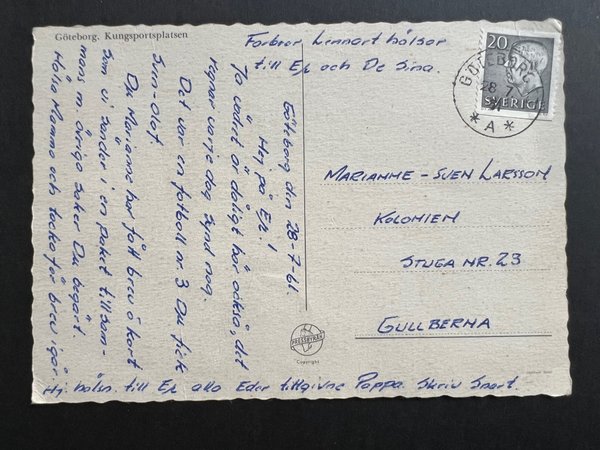 Göteborg. Kungsportsplatsen
Farbror Lennart hälsar
till Er och De Sina.
Göteborg den 28-7-61.
Hej på Er!
Ja vädret är dåligt här också, det
regnar varje dag synd nog.
Det var en fotboll nr. 3 Du fick
Sven-Olof.
Du Marianne har fått brev o kort
som vi sänder i en paket tillsam-
mans m övriga saker Du begärt.
Hälsa Mamma och tacka för brev igår
Hj. hälsn. till Er alla Eder tillgivne Pappa. Skriv snart.
20
SVERIGE
GÖTEBORG 1
28.7
61
* A *
MARIANNE - SVEN LARSSON
KOLONIEN
STUGA NR. 23
GULLBERNA
PRESSBYRÅN
Copyright